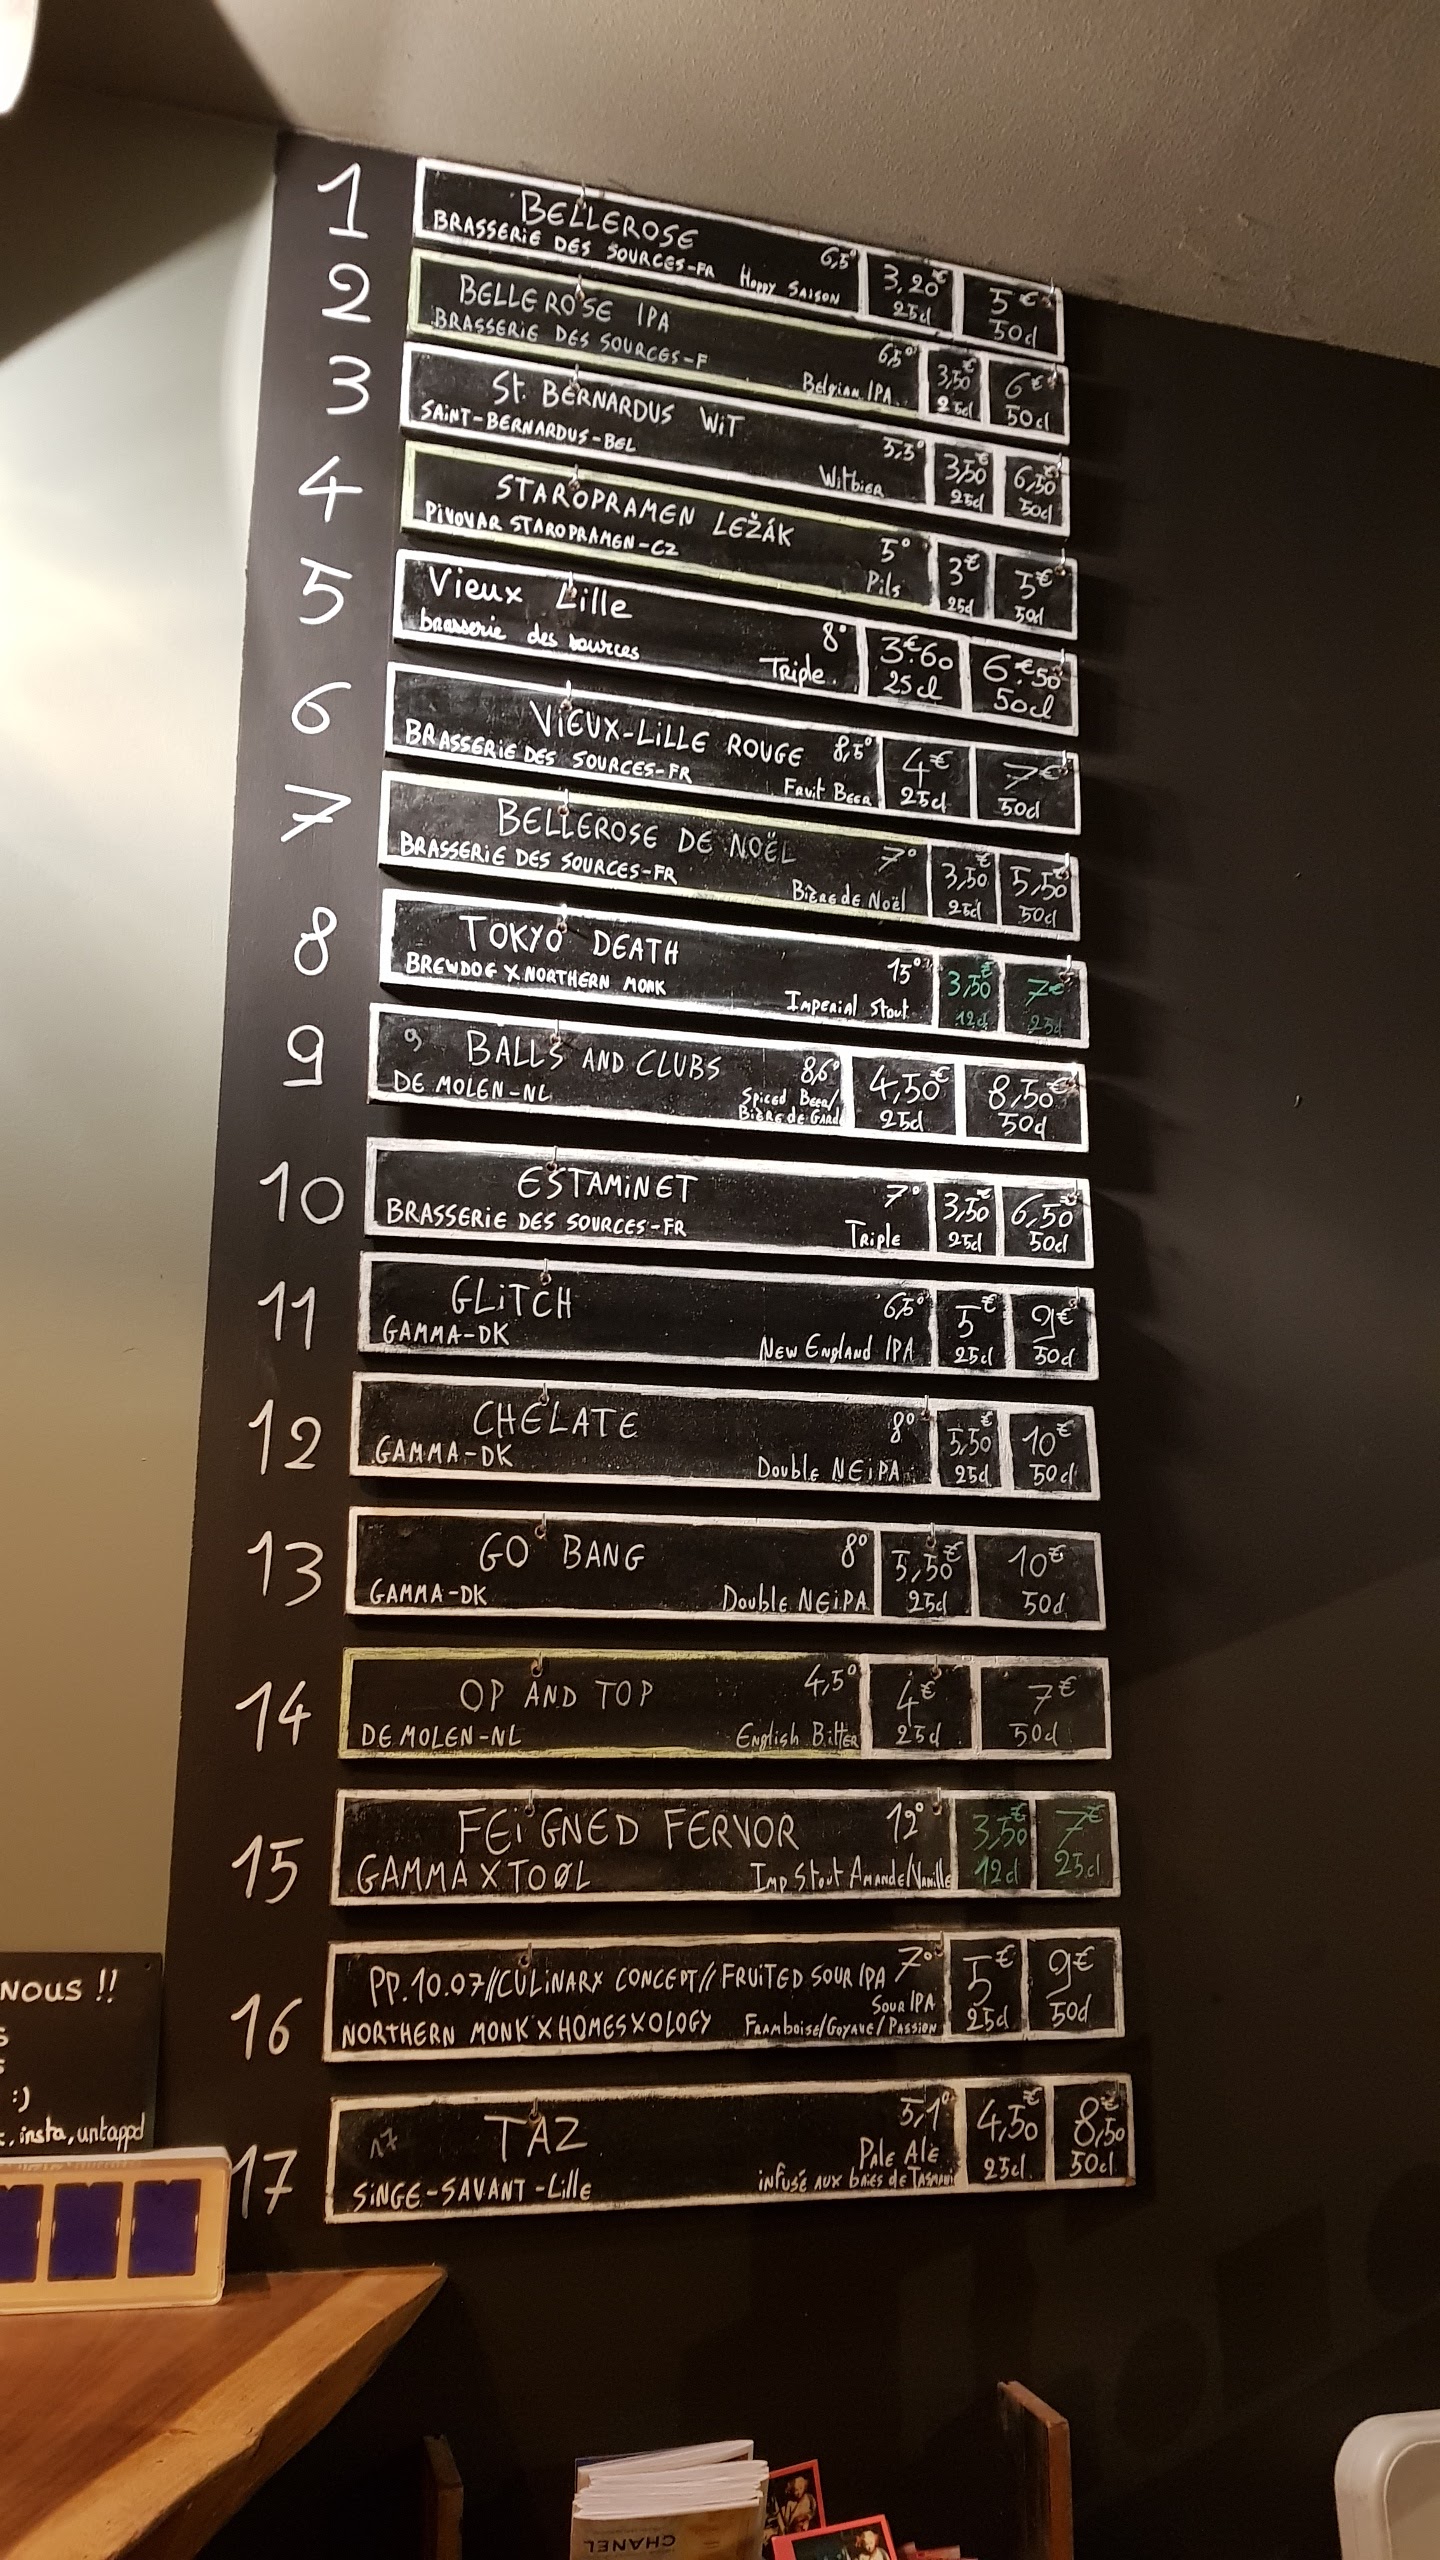 1
BELLEROSE 6,5°
BRASSERIE DES SOURCES-FR Hoppy SAISON
3,20€ 5€
25cl 50cl
2
BELLEROSE IPA 6,5°
BRASSERIE DES SOURCES-F Belgian IPA
3,50€ 6€
25cl 50cl
3
St. BERNARDUS WIT 5,5°
SAINT-BERNARDUS-BEL Witbier
3,50€ 6,50€
25cl 50cl
4
STAROPRAMEN LEŽÁK 5°
PIVOVAR STAROPRAMEN-CZ Pils
3€ 5€
25cl 50cl
5
Vieux Lille 8°
brasserie des sources Triple.
3€60 6€50
25cl 50cl
6
VIEUX-LILLE ROUGE 8,5°
BRASSERIE DES SOURCES-FR Fruit BEER
4€ 7€
25cl 50cl
7
BELLEROSE DE NOËL 7°
BRASSERIE DES SOURCES-FR BIÈRE de Noël
3,50€ 5,50€
25cl 50cl
8
TOKYO DEATH 15°
BREWDOG X NORTHERN MONK IMPERIAL Stout
3,50€ 7€
12cl 25cl
9
9 BALLS AND CLUBS 8,6°
DE MOLEN-NL Spiced Beer/
BIÈRE de GARD
4,50€ 8,50€
25cl 50cl
10
ESTAMINET 7°
BRASSERIE DES SOURCES-FR TRIPLE
3,50€ 6,50€
25cl 50cl
11
GLITCH 6,5°
GAMMA-DK NEW ENGLAND IPA
5€ 9€
25cl 50cl
12
CHELATE 8°
GAMMA-DK Double NEIPA
5,50€ 10€
25cl 50cl
13
GO BANG 8°
GAMMA-DK Double NEIPA
5,50€ 10€
25cl 50cl
14
OP AND TOP 4,5°
DE MOLEN-NL English Bitter
4€ 7€
25cl 50cl
15
FEIGNED FERVOR 12°
GAMMA X TOØL IMP Stout AMANDE/VANILLE
3,50€ 7€
12cl 25cl
16
PP.10.07//CULINARY CONCEPT//FRUITED SOUR IPA 7°
SOUR IPA
NORTHERN MONK X HOMESXOLOGY FRAMBOISE/GOYAVE/PASSION
5€ 9€
25cl 50cl
17
17 TAZ 5,1°
PALE ALE
SINGE-SAVANT-Lille INFUSÉ AUX BAIES DE TASMANI
4,50€ 8,50€
25cl 50cl
NOUS !!
:)
, insta, untappd
CHANEL